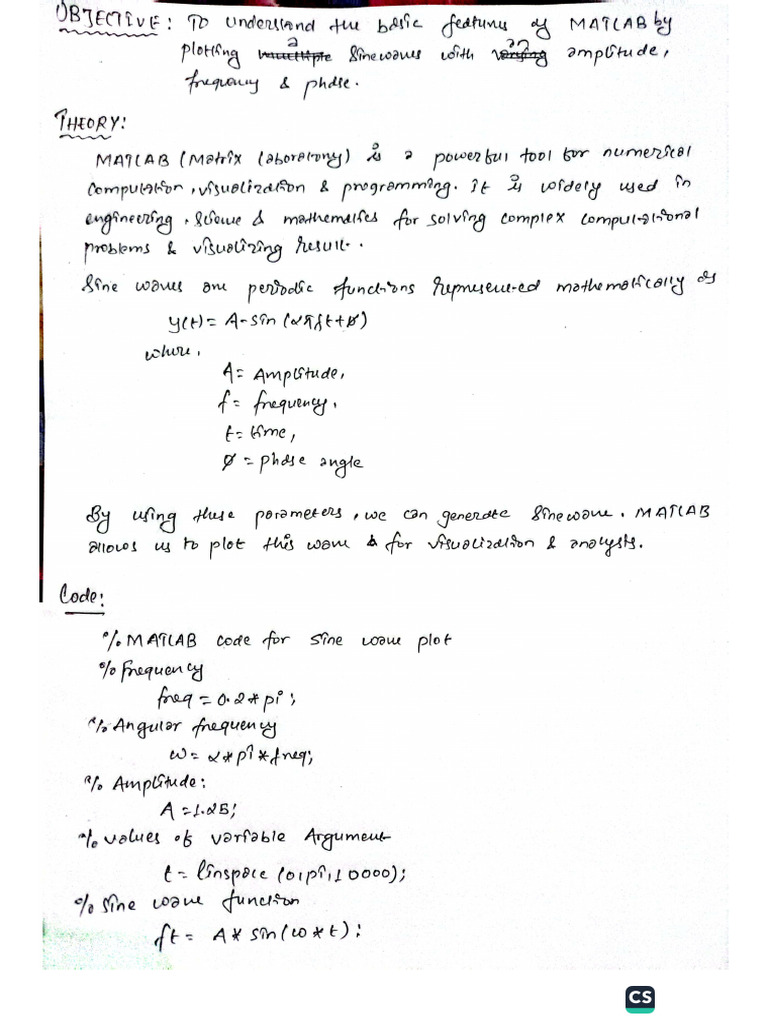 OBJECTIVE: To understand the basic features of MATLAB by
plotting a sinewaves with an amplitude,
frequency & phase.
THEORY:
MATLAB (Matrix Laboratory) is a powerful tool for numerical
computation, visualization & programming. It is widely used in
engineering, science & mathematics for solving complex computational
problems & visualizing result.
Sine waves are periodic functions represented mathematically as
y(t) = A-sin (2πft+ø)
where,
A = Amplitude,
f = frequency,
t = time,
ø = phase angle
By using these parameters, we can generate sinewave. MATLAB
allows us to plot this wave & for visualization & analysis.
Code:
% MATLAB code for sine wave plot
% frequency
freq = 0.2*pi;
% Angular frequency
w = 2*pi*freq;
% Amplitude:
A = 1.25;
% values of variable Argument
t = linspace (0,pi,10000);
% sine wave function
ft = A* sin(w*t);
CS